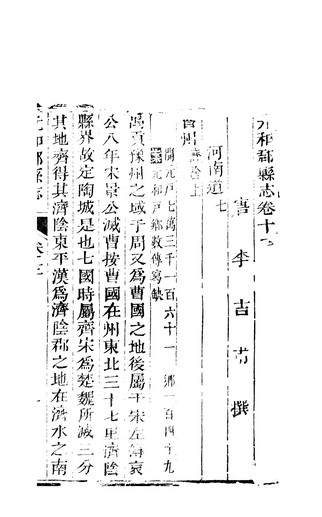 元和郡縣志卷十
唐 李吉甫 撰
河南道七
曹州 濟陰上
開元戶七萬三千一百六十一 鄉一百四十九
案元和戶鄉數傳寫缺
禹貢豫州之域于周又爲曹國之地後屬于宋左傳哀
公八年宋景公滅曹按曹國在州東北三十七里濟陰
縣界故定陶城是也七國時屬齊宋爲楚魏所滅三分
其地齊得其濟陰東平漢爲濟陰郡之地在濟水之南
元和郡縣志 卷十 一